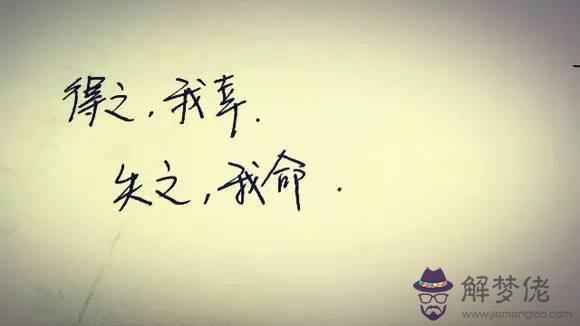 得之，我幸.
失之，我命.
解梦佬
www.jiemenglao.com